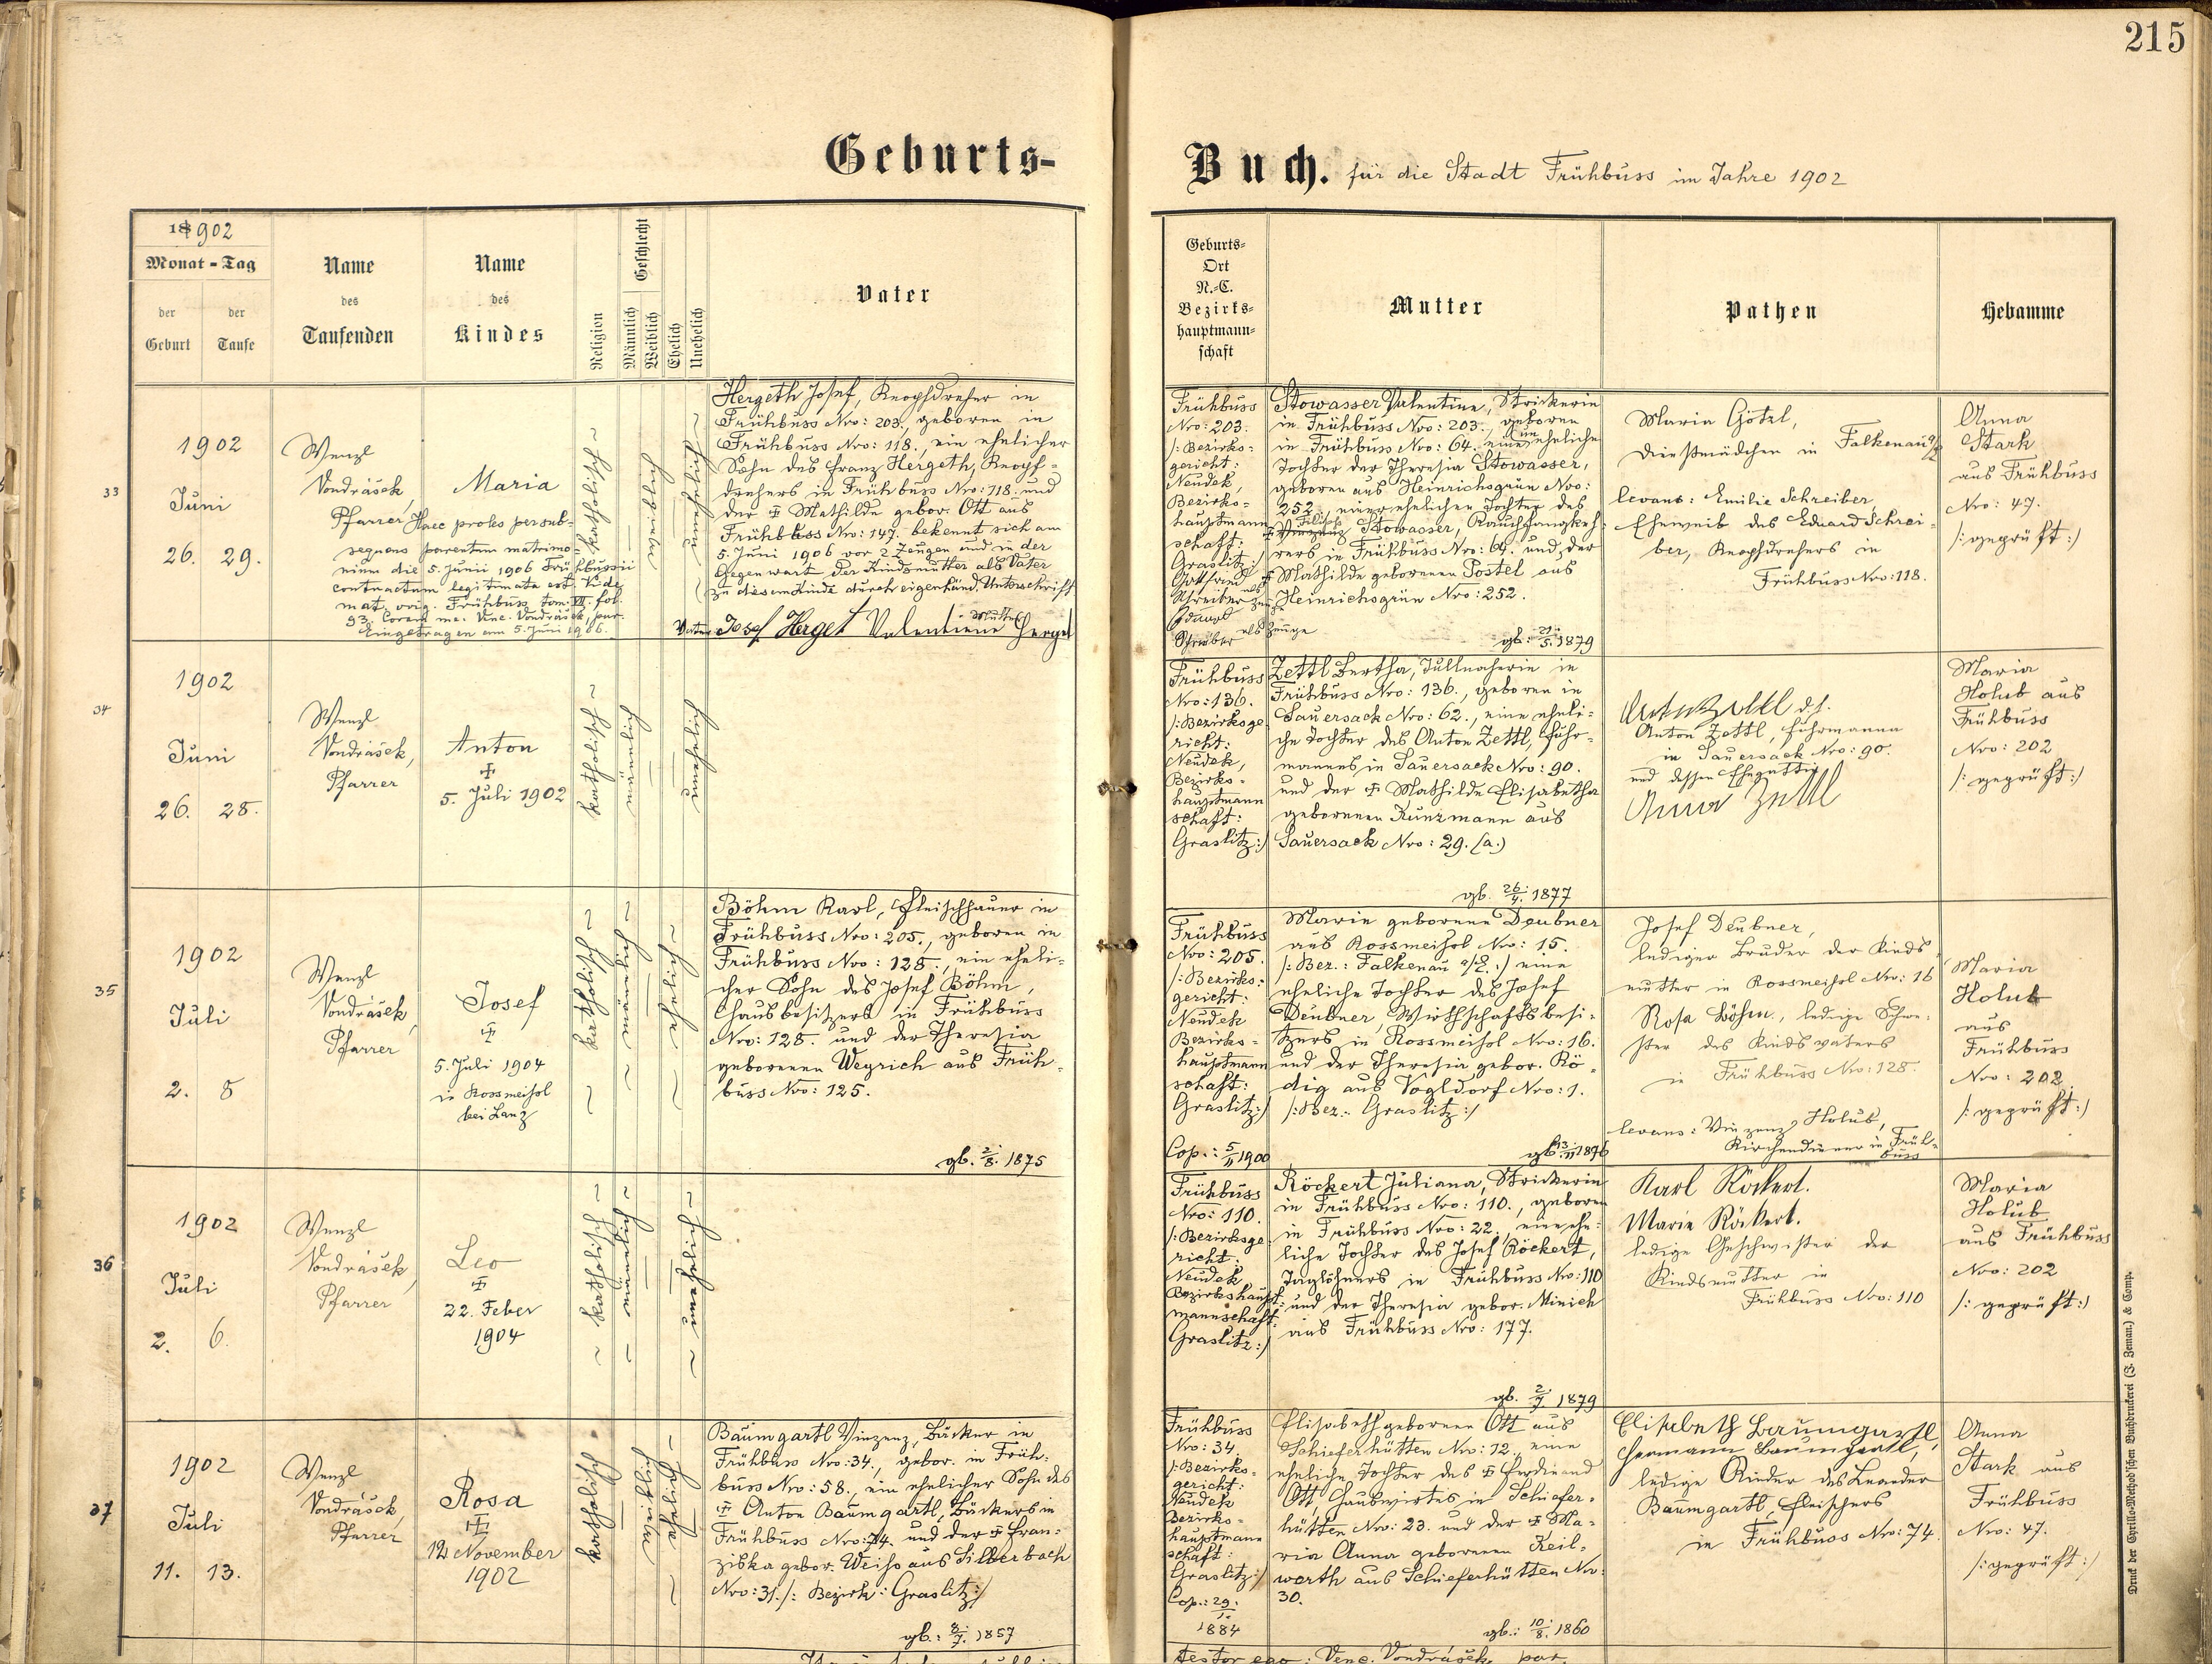 215
Geburts-
Buch. für die Stadt Frühbuss im Jahre 1902
18902
Monat - Tag
der Geburt
der Taufe
Name des Taufenden
Name des Kindes
Religion
Geschlecht
Männlich
Weiblich
Ehelich
Unehelich
Vater
Geburts-
Ort
N.-C.
Bezirks-
hauptmann-
schaft
Mutter
Pathen
Hebamme
33
1902
Juni
26. 29.
Wenzl
Vondrásek,
Pfarrer
Haec proles per sub-
sequens parentum matrimo-
nium die 5. Junii 1906 Frühbussii
contractum legitimata est. Vide
mat. orig. Frühbuss tom: VII fol
93. Coram me. Venc. Vondrásek, par.
Eingetragen am 5. Juni 1906.
Maria
katholisch
weiblich
unehelich
Hergeth Josef, Knopfdreher in
Frühbuss Nro: 203., geboren in
Frühbuss Nro: 118., ein ehelicher
Sohn des Franz Hergeth, Knopf-
drehers in Frühbuss Nro: 118. und
der ✠ Mathilde gebor. Ott aus
Frühbuss Nro: 147. bekennt sich am
5. Juni 1906 vor 2 Zeugen und in der
Gegenwart der Kindsmutter als Vater
zu diesem Kinde durch eigenhänd. Unterschrift
Vater Josef Herget Valentiene Mutter Herget
Frühbuss
Nro: 203.
/: Bezirks-
gericht:
Neudek,
Bezirks-
hauptmann
schaft:
Graslitz:/
Gottfried
Schreiber als Zeuge
Eduard
Schreiber als Zeuge
Stowasser Valentine, Strickerin
in Frühbuss Nro: 203., geboren
in Frühbuss Nro: 64. eine uneheliche
Tochter der Theresia Stowasser,
geboren aus Heinrichsgrün Nro:
252., einer ehelichen Tochter des
✠ Stowasser, Rauchfangkeh-
rers in Frühbuss Nro: 64. und der
✠ Mathilde geborenen Postel aus
Heinrichsgrün Nro: 252.
gb: 21./5. 1879
Maria Götzl,
Dienstmädchen in Falkenau a/E
levans: Emilie Schreiber,
Eheweib des Eduard Schrei-
ber, Knopfdrehers in
Frühbuss Nro: 118.
Anna
Stark
aus Frühbuss
Nro: 47.
/: geprüft :/
34
1902
Juni
26. 28.
Wenzl
Vondrásek,
Pfarrer
Anton
✠
5. Juli 1902
katholisch
männlich
unehelich
Frühbuss
Nro: 136.
/: Bezirksge
richt:
Neudek,
Bezirks-
hauptmann
schaft:
Graslitz:/
Zettl Bertha, Tüllnäherin in
Frühbuss Nro: 136., geboren in
Sauersack Nro: 62., eine eheli-
che Tochter des Anton Zettl, Fuhr-
mannes in Sauersack Nro: 90.
und der ✠ Mathilde Elisabetha
geborenen Kunzmann aus
Sauersack Nro: 29. (a.)
gb. 26./4. 1877
Anton Zettl
Anton Zettl, Fuhrmann
in Sauersack Nro: 90.
und dessen Ehegattin
Anna Zettl
Maria
Holub aus
Frühbuss
Nro: 202
/: geprüft :/
35
1902
Juli
2. 8
Wenzl
Vondrásek,
Pfarrer
Josef
✠
5. Juli 1904
in Rossmeisl
bei Lanz
katholisch
männlich
ehelich
Böhm Karl, Fleischhauer in
Frühbuss Nro: 205., geboren in
Frühbuss Nro: 128., ein eheli-
cher Sohn des Josef Böhm,
Hausbesitzers in Frühbuss
Nro: 128. und der Theresia
geborenen Weyrich aus Früh-
buss Nro: 125.
gb. 2/8. 1875
Frühbuss
Nro: 205.
/: Bezirks-
gericht:
Neudek
Bezirks-
hauptmann
schaft:
Graslitz:/
Cop.: 5/11 1900
Marie geborene Deubner
aus Rossmeisl Nro: 15.
/: Bez.: Falkenau a/E. :/ eine
eheliche Tochter des Josef
Deubner, Wirthschaftsbesi-
tzers in Rossmeisl Nro: 16.
und der Theresia gebor. Rö-
dig aus Vogldorf Nro: 1.
/: Bez.: Graslitz :/
gb. 13./11 1876
Josef Deubner,
lediger Bruder der Kinds-
mutter in Rossmeisl Nro: 16
Rosa Böhm., ledige Schwe-
ster des Kindsvaters
in Frühbuss Nro: 128.
levans: Vinzenz Holub,
Kirchendiener in Früh-
buss
Maria
Holub
aus
Frühbuss
Nro: 202
/: geprüft :/
36
1902
Juli
2. 6.
Wenzl
Vondrásek,
Pfarrer
Leo
✠
22. Feber
1904
katholisch
männlich
unehelich
Frühbuss
Nro: 110.
/: Bezirksge
richt:
Neudek
Bezirkshaupt-
mannschaft:
Graslitz:/
Röckert Juliana, Strickerin
in Frühbuss Nro: 110., geboren
in Frühbuss Nro: 22., eine ehe-
liche Tochter des Josef Röckert,
Taglöhners in Frühbuss Nro: 110
und der Theresia gebor. Minich
aus Frühbuss Nro: 177.
gb. 2./7. 1879
Karl Röckert.
Marie Röckert.
ledige Geschwister der
Kindsmutter in
Frühbuss Nro: 110
Maria
Holub
aus Frühbuss
Nro: 202
/: geprüft :/
37
1902
Juli
11. 13.
Wenzl
Vondrásek,
Pfarrer
Rosa
✠
12 November
1902
katholisch
weiblich
ehelich
Baumgartl Vinzenz, Bäcker in
Frühbuss Nro: 34., gebor. in Früh-
buss Nro: 58., ein ehelicher Sohn des
✠ Anton Baumgartl, Bäckers in
Frühbuss Nro: 74. und der ✠ Fran-
ziska gebor. Weiss aus Silberbach
Nro: 31. /: Bezirk: Graslitz :/
gb.: 8./7. 1857
Frühbuss
Nro: 34.
/: Bezirks-
gericht:
Neudek
Bezirks-
hauptmann
schaft:
Graslitz:/
Cop.: 29./1.
1884
Elisabeth geborenen Ott aus
Schieferhütten Nro: 12., eine
eheliche Tochter des ✠ Ferdinand
Ott, Hauswirtes in Schiefer-
hütten Nro: 23. und der ✠ Ma-
ria Anna geborenen Keil-
werth aus Schieferhütten Nro:
30.
gb.: 10./8. 1860
Elisabeth Baumgartl,
Hermann Baumgartl,
ledige Kinder des Leander
Baumgartl, Fleischers
in Frühbuss Nro: 74.
Anna
Stark aus
Frühbuss
Nro: 47.
/: geprüft :/
testor ego: Venc. Vondrásek, par.
Druck der Cyrillo-Method'schen Buchdruckerei (J. Zeman) & Comp.